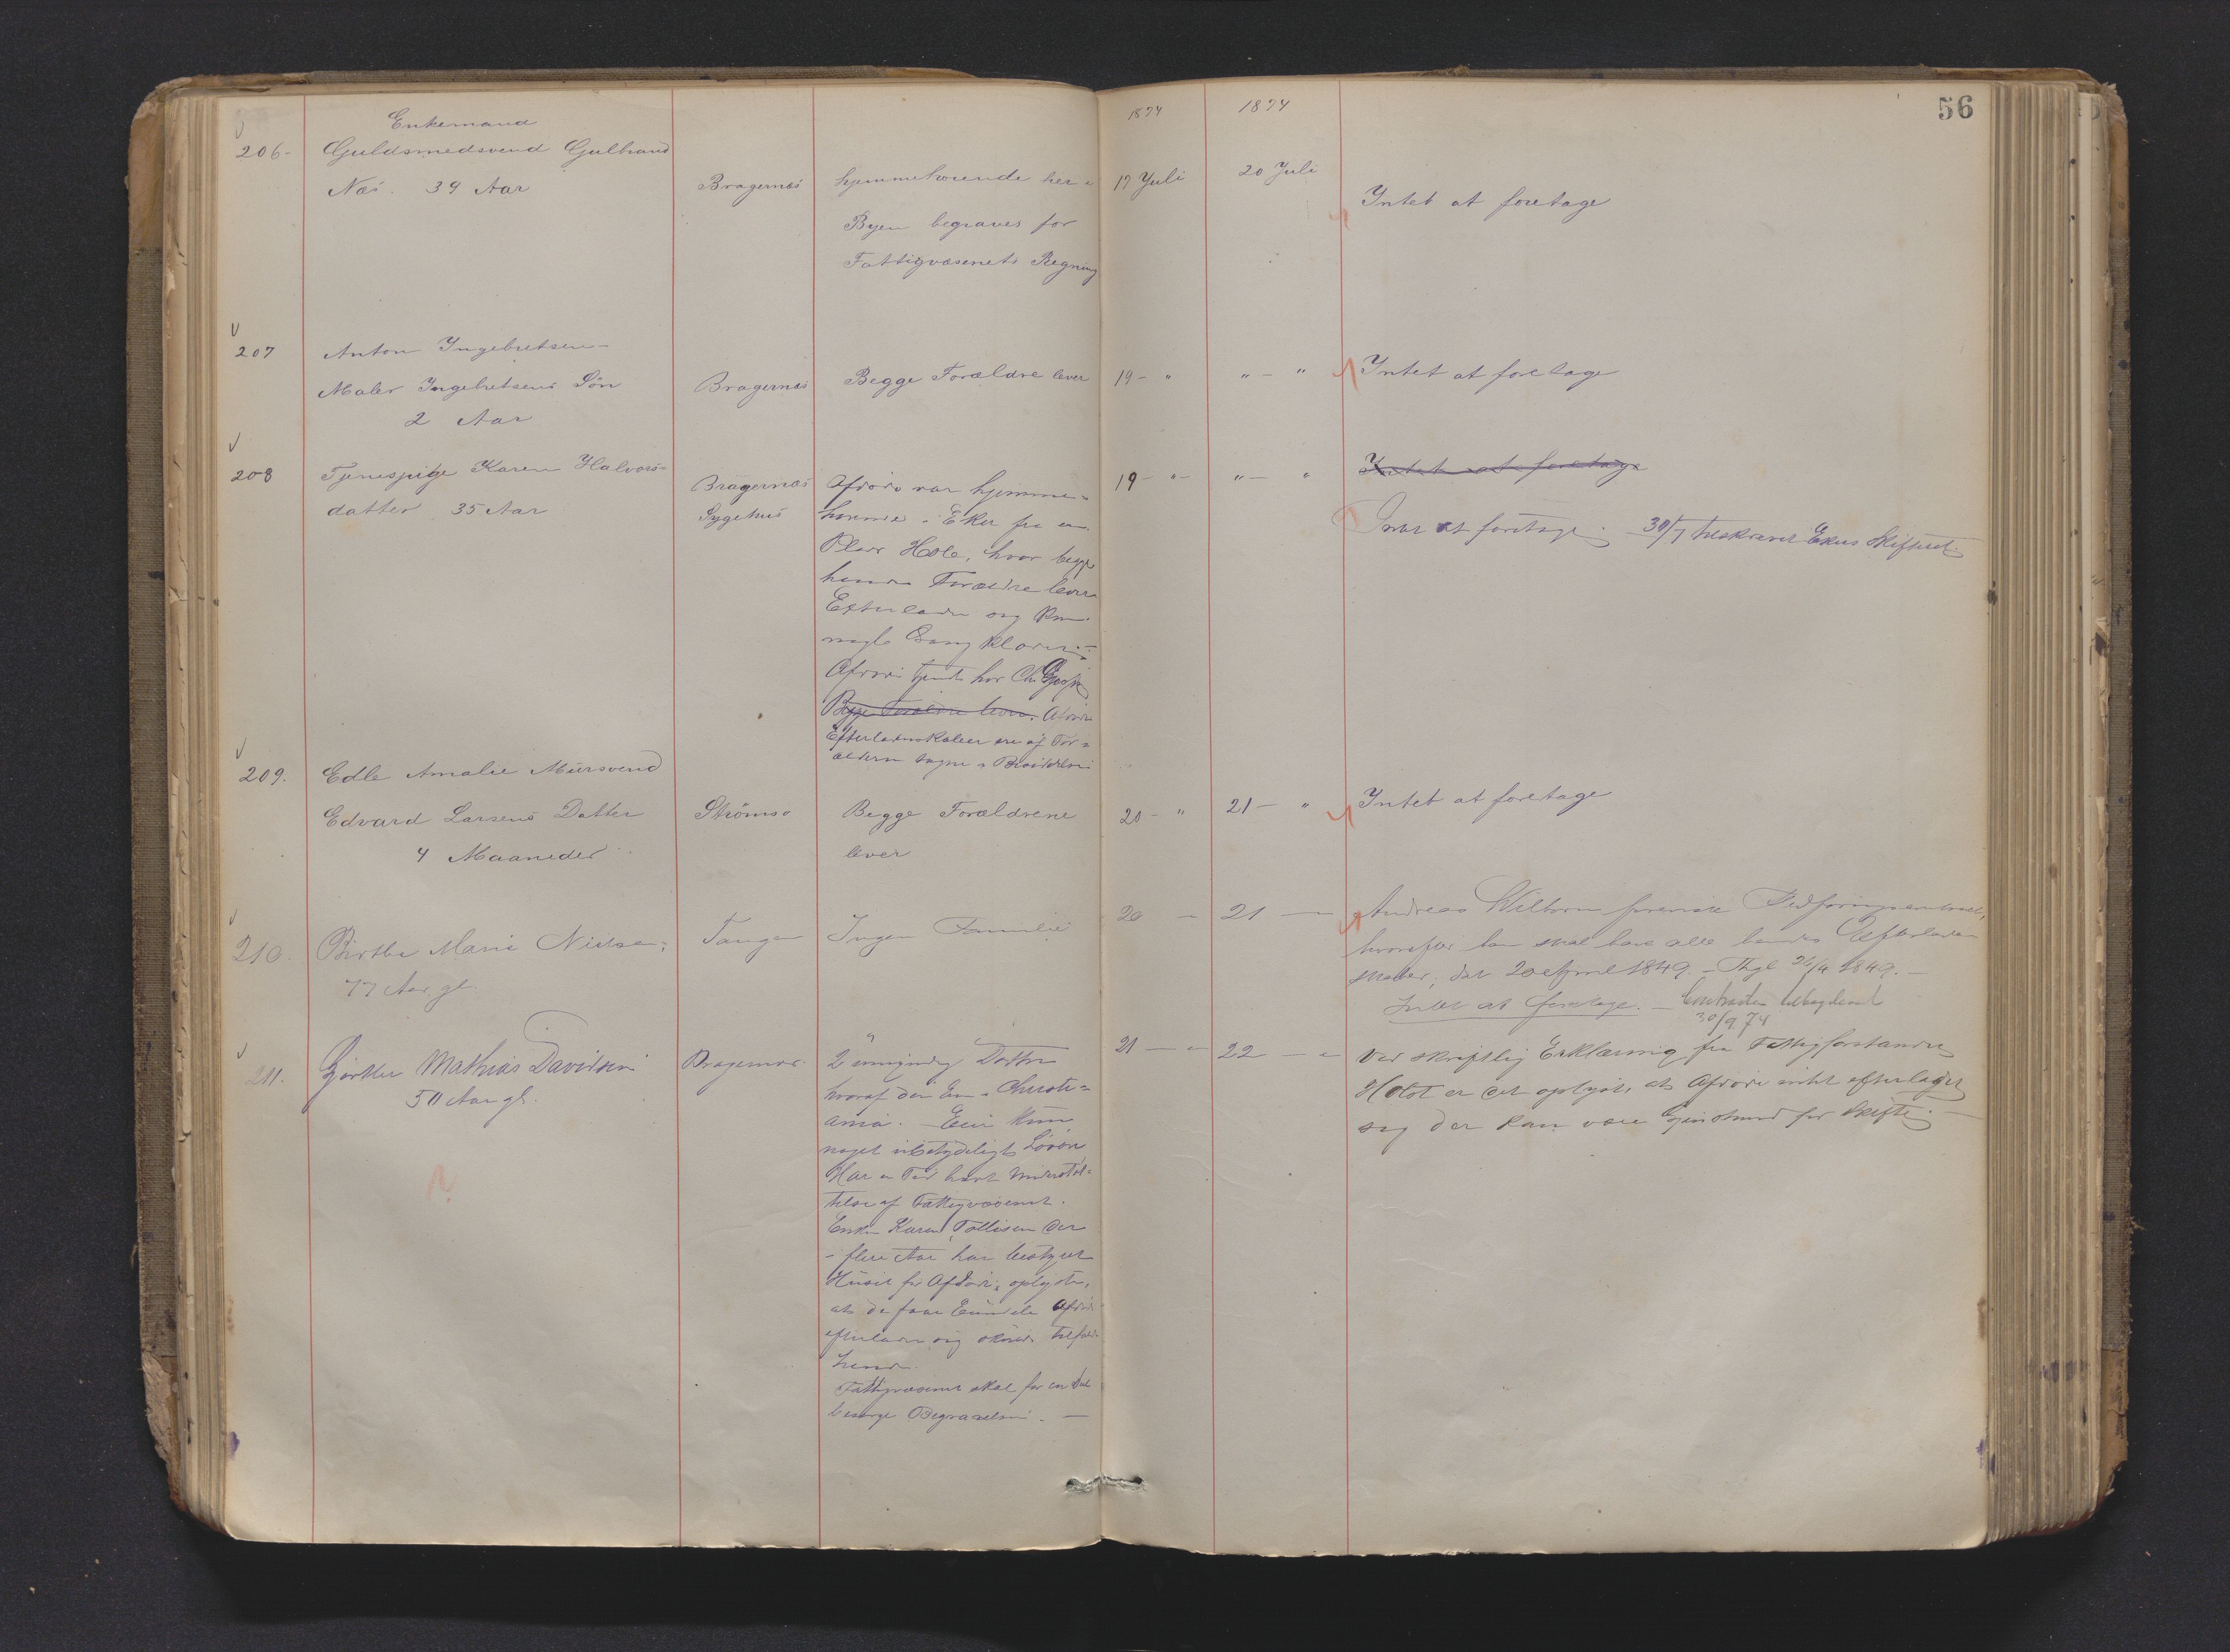 1874
1874
56
Enkemand
206- Guldsmedsvend Gulbrand
Næs. 39 Aar
Bragernæs
hjemmehørende her i
Byen begraves for
Fattigvæsenets Regning
17 Juli
20 Juli
Intet at foretage
207 Anton Ingebretsen
Maler Ingebretsens Sön
2 Aar
Bragernæs
Begge Forældre lever
19 - "
" - "
Intet at foretage
208 Tjenespige Karen Halvors-
datter 35 Aar
Bragernæs
Sygehus
Afdøde var hjemme-
hørende i Eker fra en
Plads Hole, hvor begge
hendes Forældre lever
Efterlader sig kun
nogle Gang Klæder.
Afdøde tjente hos Chr.
Begge Forældre lever. Afdødes
Efterladenskaber ere af For-
ældrene tagne i Besiddelse
19 - " -
" - "
Intet at foretage
Intet at foretage. 30/7 tilskrevet Ekers Skifteret.
209. Edle Amalie Mürsvend
Edvard Larsens Datter
4 Maaneder
Strömsö
Begge Forældrene
lever
20 - "
21 - "
Intet at foretage
210. Birthe Marie Nielsen
77 Aar gl.
Tangen
Ingen Familie
20 -
21 -
Andreas
hvorefter han skal have alle hendes Efterladen-
skaber, dat 20 April 1849. - Thgl 26/4 1849. -
Intet at foretage. - Contracten tilbageleveret
30/9 74
211. Gjörtler Mathias Davidsen
50 Aar gl.
Bragernæs
2 umyndig Døttre
hvoraf den Ene i Christi-
ania. Eier kun
noget ubetydeligt Løsøre
Har en Tid havt Understøt-
telse af Fattigvæsenet.
Enke Karen Tollisen der
i flere Aar har bestyret
Huset for Afdøde, oplyste,
at de faae Eiendele Afdøde
efterlader sig
hende.
Fattigvæsenet skal for en Deel
besørge Begravelsen. -
21 - "
22 - "
Ved skriftlig Erklæring fra Fattigforstander
Holst er det oplyst, at Afdøde intet efterlader
sig der kan være Gjenstand for Skifte. -